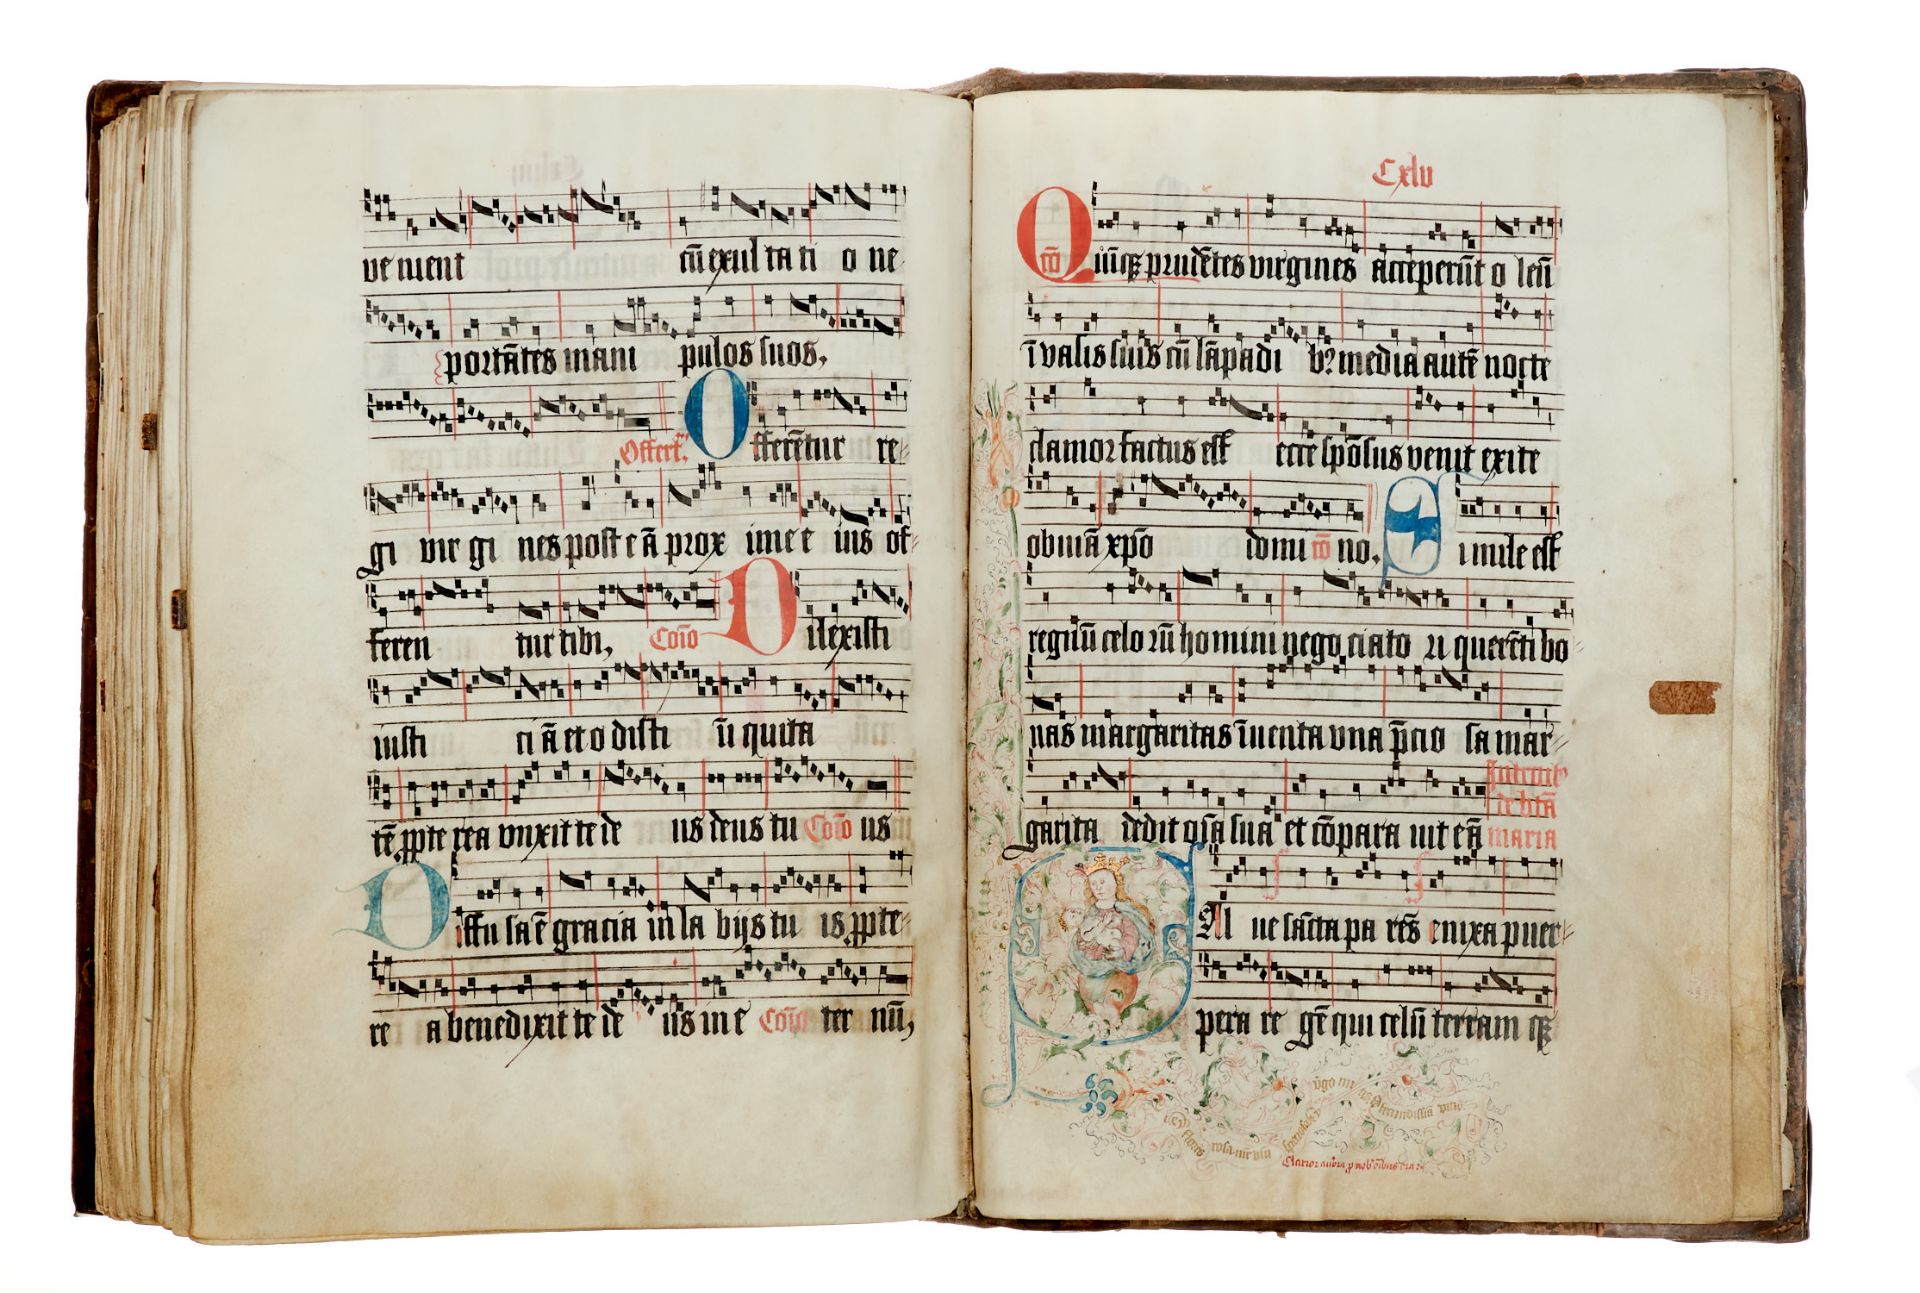 ve nient cū exul ta ti o ne
portātes mani pulos suos.
Offert. Offerētur re-
gi vir gi nes post e ā prox ime e ius of-
feren tur tibi, Cōio Dilexisti
iusti ci ā et o disti ī iquita
tē ppte rea vnxit te de us deus tu Cōio us
Diffu sa ē gracia in la bijs tu is ppte-
re a benedixit te de us in e Cōio ter nū,
Cxlv
Cō Quīqꝫ prudētes virgines acceperūt o leū
ī vasis suis cū lāpadi bꝫ media autē nocte
clamor factus est ecce spōsus venit exite
obviā xpō domi cō no. Simile est
regnū celo rū homini nego ciato ri querēti bo
nas margaritas īuenta vna p̄cio sa mar-
garita dedit oīa sua et cōpara uit eā
Introit9
de btā
maria
SAl ue sācta pa rēs enixa puer-
pera re gē qui celū terram qꝫ